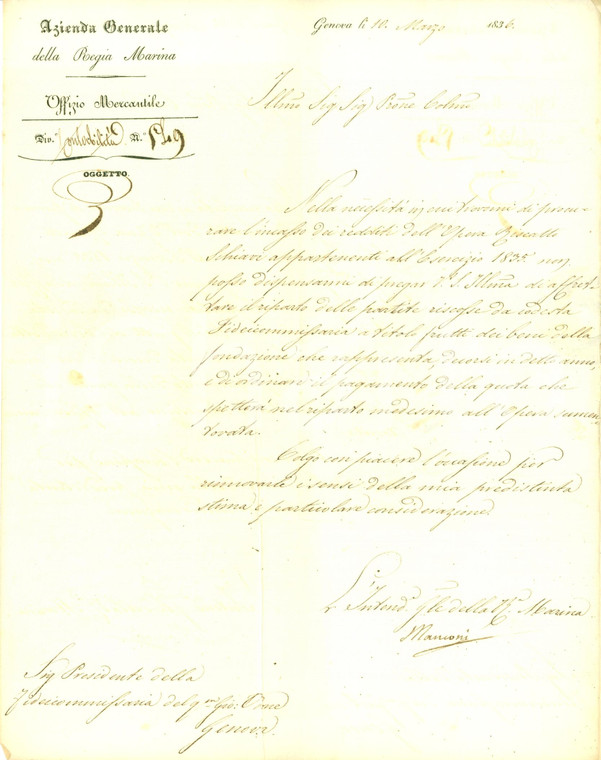 Azienda Generale
della Regia Marina
Uffizio Mercantile
Div. Contabilità N.° 129
OGGETTO
Genova li 10 Marzo 1836.
Illmo Sig Sig Prone Colmo
Nella necessità in cui trovomi di procu-
rare l'incasso dei redditi dell'Opera Riscatto
Schiavi appartenenti all'Esercizio 1835. non
posso dispensarmi di pregar V. S. Illma di affret-
tare il riparto delle partite riscosse da codesta
Fidecommissaria a titolo frutti dei beni della
fondazione che rappresenta, decorsi in detto anno,
e di ordinare il pagamento della quota che
spetterà nel riparto medesimo all'Opera summen-
tovata.
Colgo con piacere l'occasione per
rinnovarle i sensi della mia predistinta
stima e particolare considerazione.
L'Intend. Gle della Ra Marina
Manconi
Sig Presidente della
Fidecommissaria del qm Gio:
Genova.